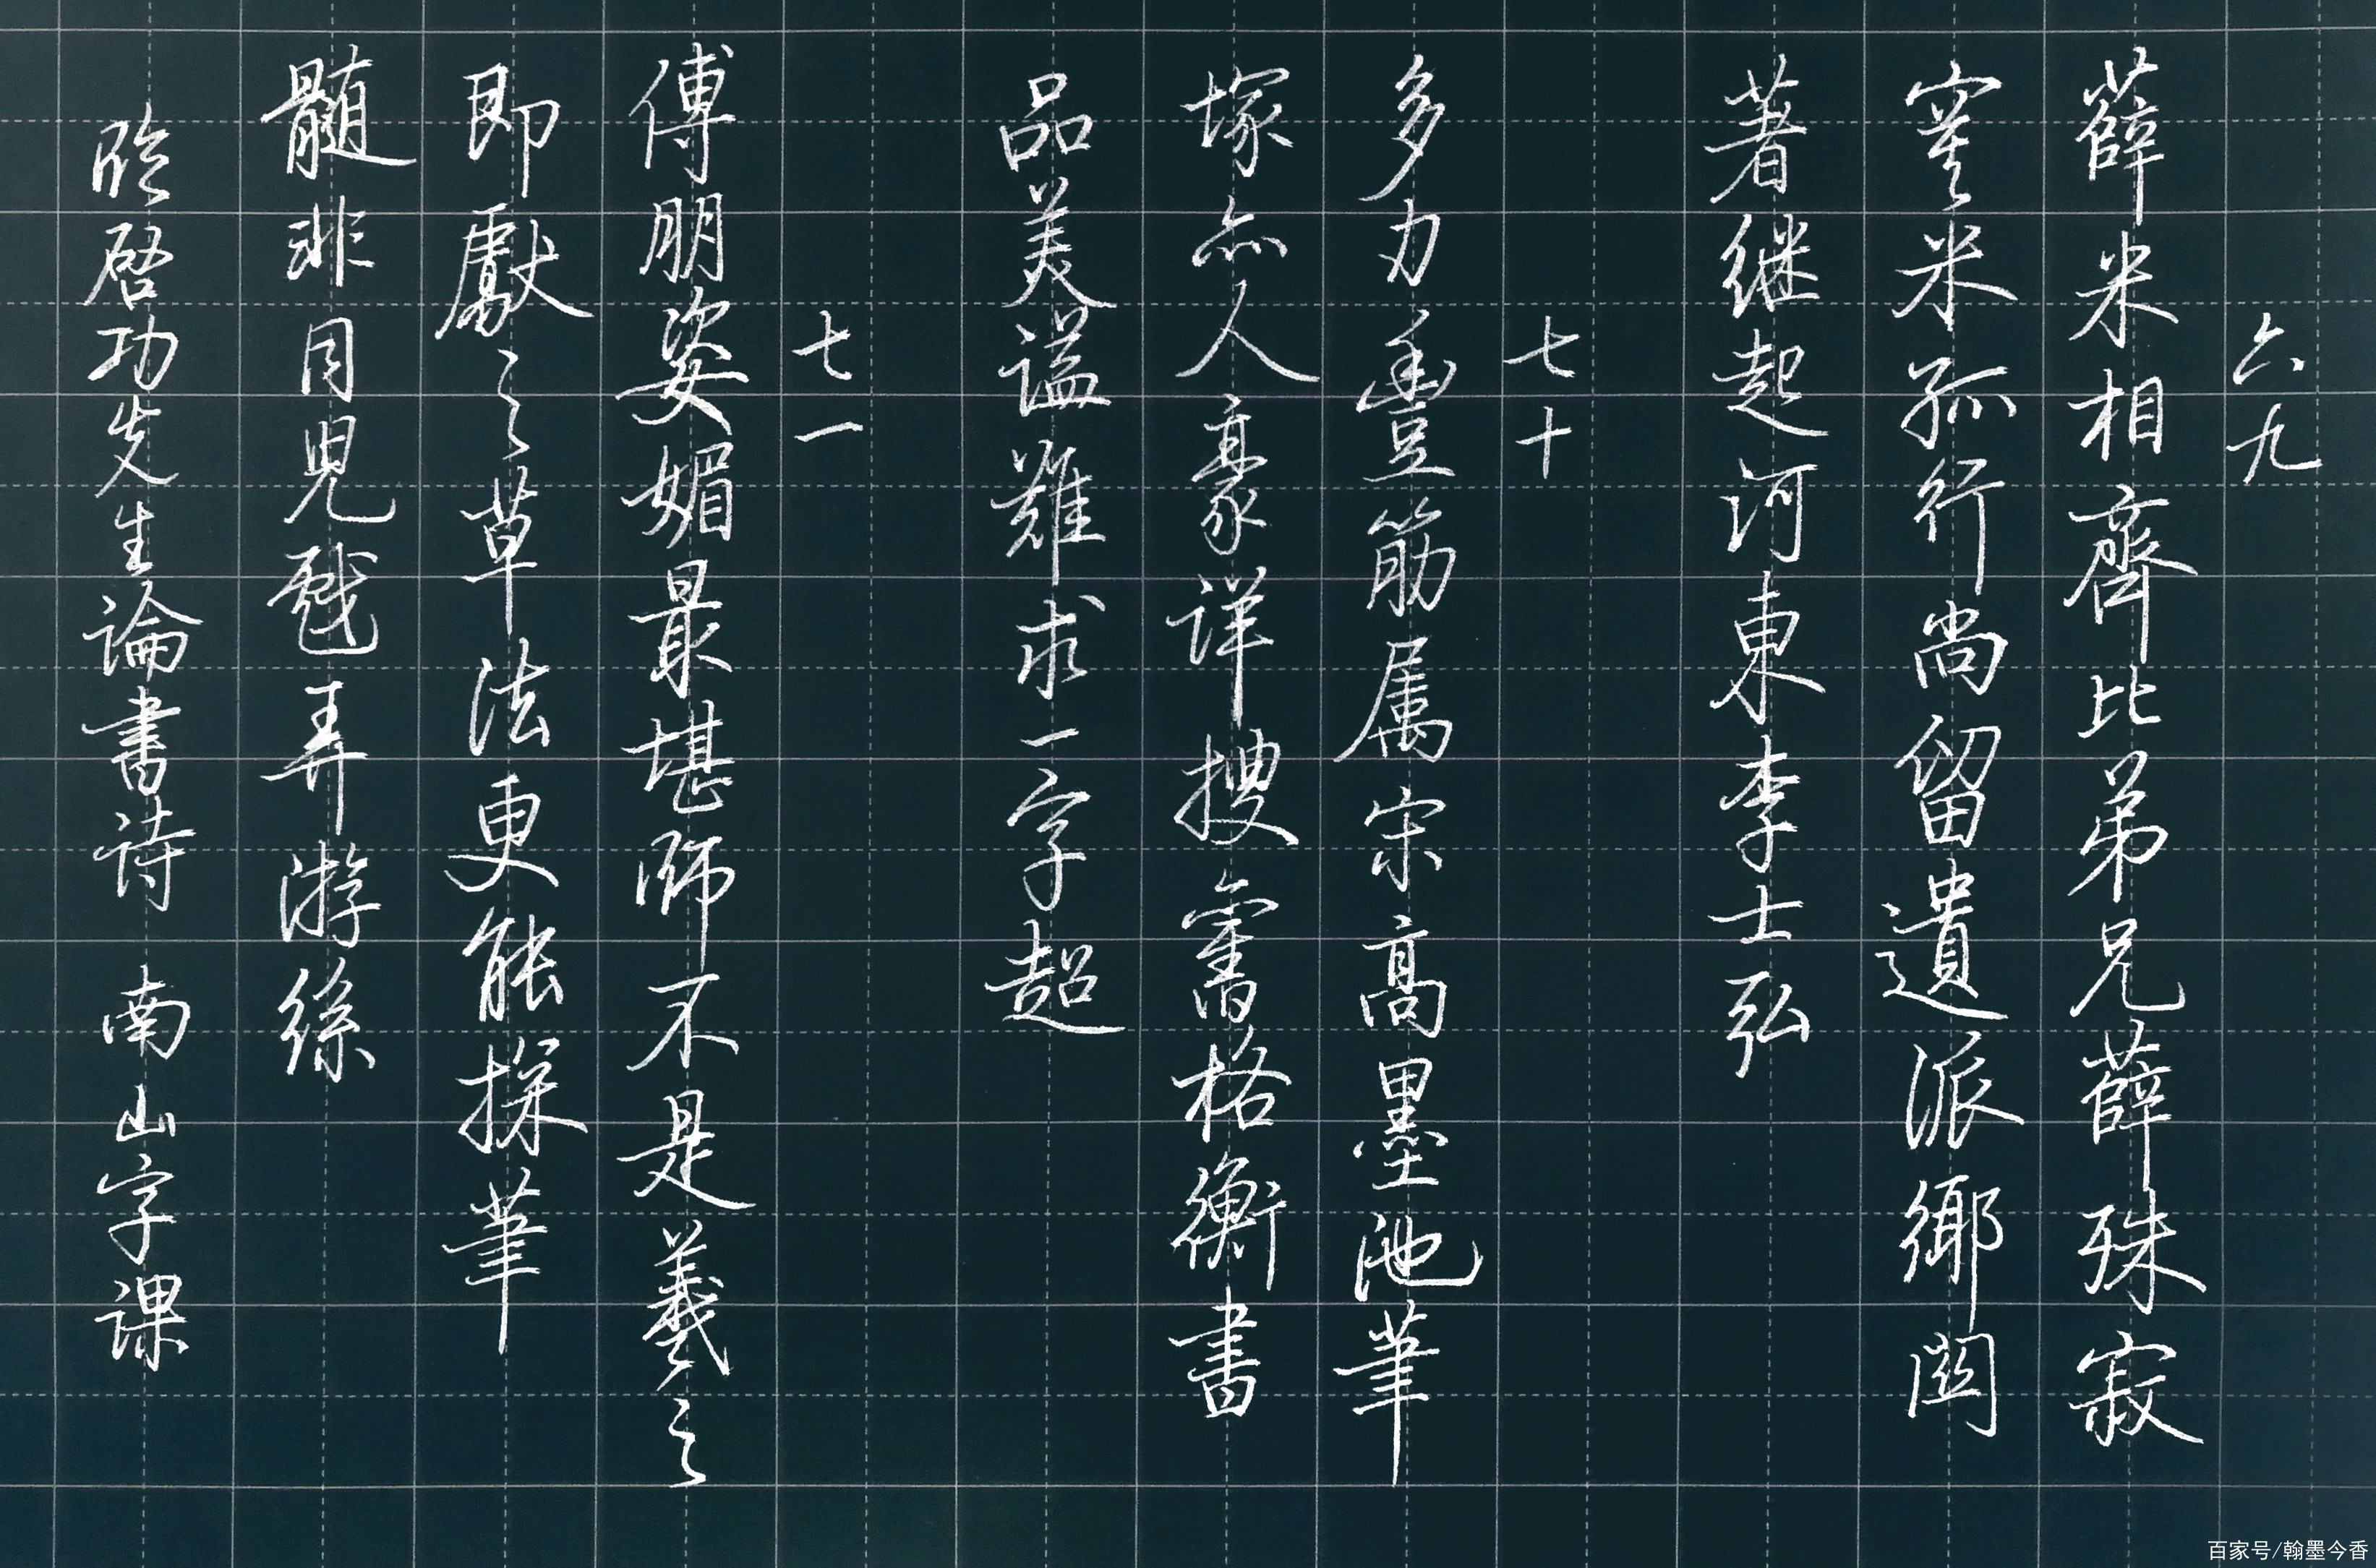 六九
薛米相齊比弟兄薛殊寂
寞米孤行尚留遺派鄉關
著继起河東李士弘
七十
多力豐筋属宗高墨池筆
塚亦人豪详搜舊格衡書
品美谥難求一字超
七一
傅朋姿媚最堪师不是羲之
即獻之草法更能探筆
髓非同兒戲弄游絲
临启功先生論書詩 南山字课
百家号/翰墨今香